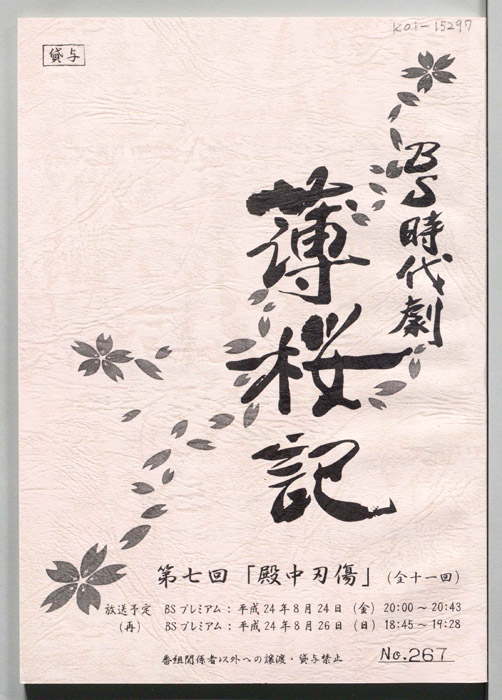 K01-15297
貸与
BS時代劇
薄桜記
第七回「殿中刃傷」(全十一回)
放送予定 BSプレミアム:平成24年8月24日(金)20:00~20:43
(再) BSプレミアム:平成24年8月26日(日)18:45~19:28
番組関係者以外への譲渡・貸与禁止
No.267